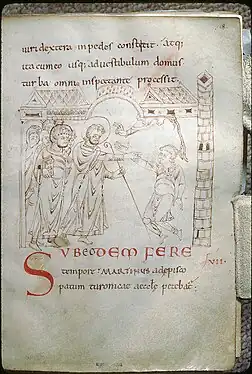 iuri dextera inpedes constitit. atqi
ita cum eo usqi aduestibulum domus
turba omni inspectante processit.
SUB EODEM FERE
VII.
tempore MARTINUS adepisco
patum turonicae aecclę petebat.